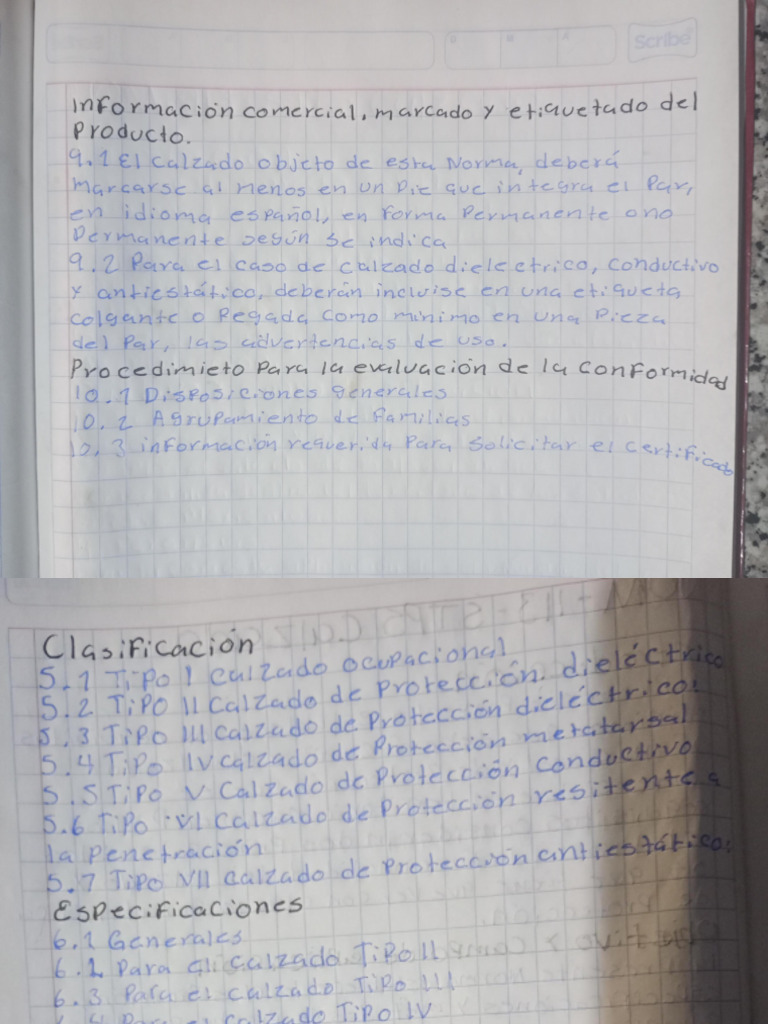 Scribe
Información comercial, marcado y etiquetado del
Producto.
9.1 El calzado objeto de esta Norma, deberá
Marcarse al menos en un Pie que integra el Par,
en idioma español, en forma Permanente o no
Permanente según se indica
9.2 Para el caso de calzado dielectrico, conductivo
y antiestático, deberán incluise en una etiqueta
colgante o Pegada como minimo en una Pieza
del Par, las advertencias de uso.
Procedimieto Para la evaluación de la conformidad
10.1 Disposiciones generales
10.2 Agrupamiento de familias
10.3 información requerida Para solicitar el certificado
Clasificación
5.1 Tipo I calzado ocupacional
5.2 Tipo II Calzado de Protección dieléctrico
5.3 Tipo III Calzado de Protección dieléctrico.
5.4 Tipo IV calzado de Protección metatarsal
5.5 Tipo V Calzado de Protección conductivo
5.6 Tipo VI Calzado de Protección resitente a
la Penetración
5.7 Tipo VII calzado de Protección antiestático.
Especificaciones
6.1 Generales
6.2 Para el calzado Tipo II
6.3 Para el calzado Tipo III
Para el calzado Tipo IV